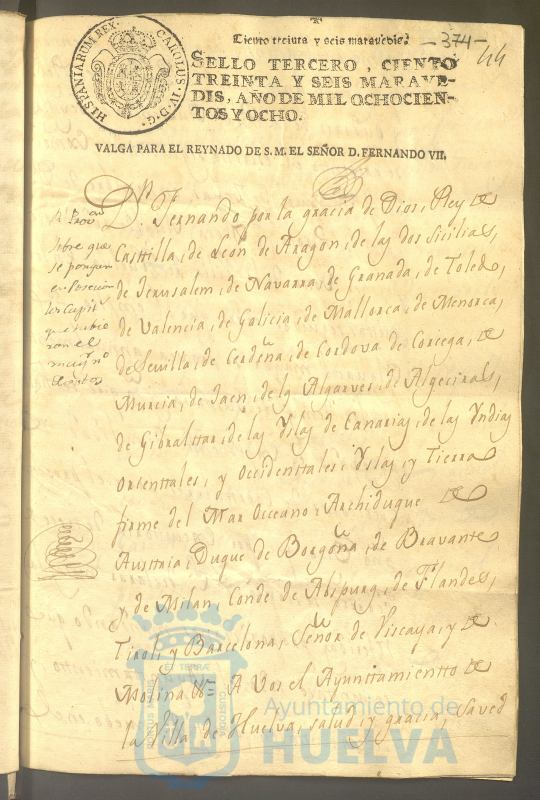 HISPANIARUM REX. CAROLUS IV D.G.
Ciento treinta y seis maravedis.
-374-
44
SELLO TERCERO, CIENTO
TREINTA Y SEIS MARAVE-
DIS, AÑO DE MIL OCHOCIEN-
TOS Y OCHO.
VALGA PARA EL REYNADO DE S. M. EL SEÑOR D. FERNANDO VII.
sobre que
se pongan
en Posecion
los Capit.s
que
el
Dn. Fernando por la gracia de Dios, Rey de
Castilla, de León, de Aragon, de las dos Sicilias,
de Jerusalem, de Navarra, de Granada, de Toledo,
de Valencia, de Galicia, de Mallorca, de Menorca,
de Sevilla, de Cerdeña, de Cordova, de Corcega, de
Murcia, de Jaen, de los Algarves, de Algeciras,
de Gibralttar, de las Yslas de Canarias, de las Yndias
Orienttales, y Occidenttales, Yslas, y Tierra
firme del Mar Occeano, Archiduque de
Austtria, Duque de Borgoña, de Bravante
y de Milan, Conde de Abspurg, de Flandes,
Tirol, y Barcelona, Señor de Viscaya, y de
Molina &.ª A Vos el Ayunttamientto de
la Villa de Huelva, salud, y gracia, Saved
Ayuntamiento de
HUELVA